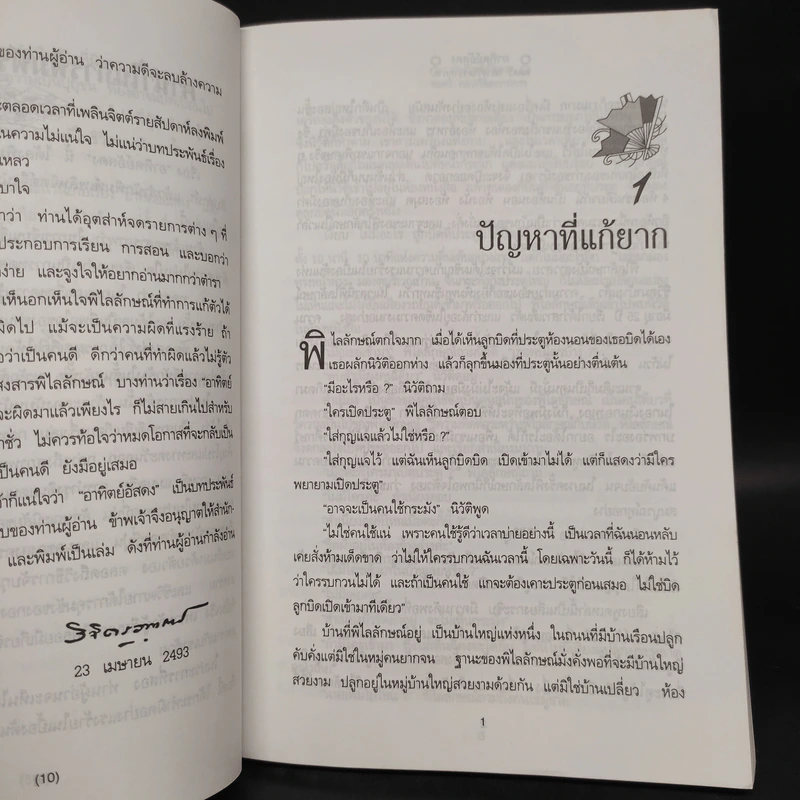 ของท่านผู้อ่าน ว่าความดีจะลบล้างความ
ะตลอดเวลาที่เพลินจิตต์รายสัปดาห์ลงพิมพ์
นความไม่แน่ใจ ไม่แน่ว่าบทประพันธ์เรื่อง
เหลว
บาใจ
าว่า ท่านได้อุตส่าห์จดรายการต่าง ๆ ที่
ประกอบการเรียน การสอน และบอกว่า
ง่าย และจูงใจให้อยากอ่านมากกว่าตำรา
เห็นอกเห็นใจพิไลลักษณ์ที่ทำการแก้ตัวได้
ผิดไป แม้จะเป็นความผิดที่แรงร้าย ถ้า
อว่าเป็นคนดี ดีกว่าคนที่ทำผิดแล้วไม่รู้ตัว
สงสารพิไลลักษณ์ บางท่านว่าเรื่อง "อาทิตย์
จะผิดมาแล้วเพียงไร ก็ไม่สายเกินไปสำหรับ
าชั่ว ไม่ควรท้อใจว่าหมดโอกาสที่จะกลับเป็น
เป็นคนดี ยังมีอยู่เสมอ
ก้าก็แน่ใจว่า "อาทิตย์อัสดง" เป็นบทประพันธ์
บของท่านผู้อ่าน ข้าพเจ้าจึงอนุญาตให้สำนัก-
และพิมพ์เป็นเล่ม ดังที่ท่านผู้อ่านกำลังอ่าน
23 เมษายน 2493
(10)
1
ปัญหาที่แก้ยาก
พิไลลักษณ์ตกใจมาก เมื่อได้เห็นลูกบิดที่ประตูห้องนอนของเธอบิดได้เอง
เธอผลักนิวัติออกห่าง แล้วก็ลุกขึ้นมองที่ประตูนั้นอย่างตื่นเต้น
"มีอะไรหรือ ?" นิวัติถาม
"ใครเปิดประตู" พิไลลักษณ์ตอบ
"ใส่กุญแจแล้วไม่ใช่หรือ ?"
"ใส่กุญแจไว้ แต่ฉันเห็นลูกบิดบิด เปิดเข้ามาไม่ได้ แต่ก็แสดงว่ามีใคร
พยายามเปิดประตู"
"อาจจะเป็นคนใช้กระมัง" นิวัติพูด
"ไม่ใช่คนใช้แน่ เพราะคนใช้รู้ดีว่าเวลาบ่ายอย่างนี้ เป็นเวลาที่ฉันนอนหลับ
เคยสั่งห้ามเด็ดขาด ว่าไม่ให้ใครรบกวนฉันเวลานี้ โดยเฉพาะวันนี้ ก็ได้ห้ามไว้
ว่าใครรบกวนไม่ได้ และถ้าเป็นคนใช้ แกจะต้องเคาะประตูก่อนเสมอ ไม่ใช่บิด
ลูกบิดเปิดเข้ามาทีเดียว"
บ้านที่พิไลลักษณ์อยู่ เป็นบ้านใหญ่แห่งหนึ่ง ในถนนที่มีบ้านเรือนปลูก
คับคั่งแต่มิใช่ในหมู่คนยากจน ฐานะของพิไลลักษณ์มั่งคั่งพอที่จะมีบ้านใหญ่
สวยงาม ปลูกอยู่ในหมู่บ้านใหญ่สวยงามด้วยกัน แต่มิใช่บ้านเปลี่ยว ห้อง
1